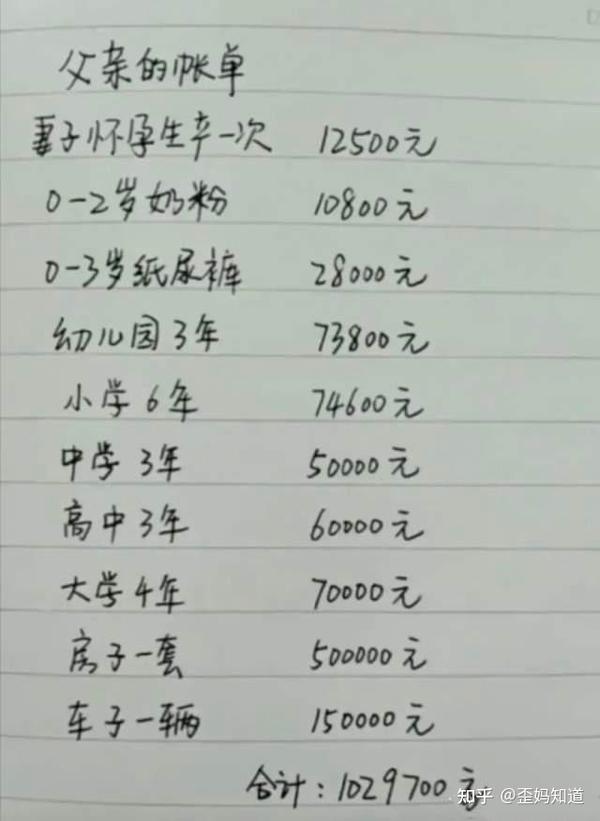 父亲的帐单
妻子怀孕生产一次 12500元
0-2岁奶粉 10800元
0-3岁纸尿裤 28000元
幼儿园3年 73800元
小学6年 74600元
中学3年 50000元
高中3年 60000元
大学4年 70000元
房子一套 500000元
车子一辆 150000元
合计:1029700元
知乎 @歪妈知道